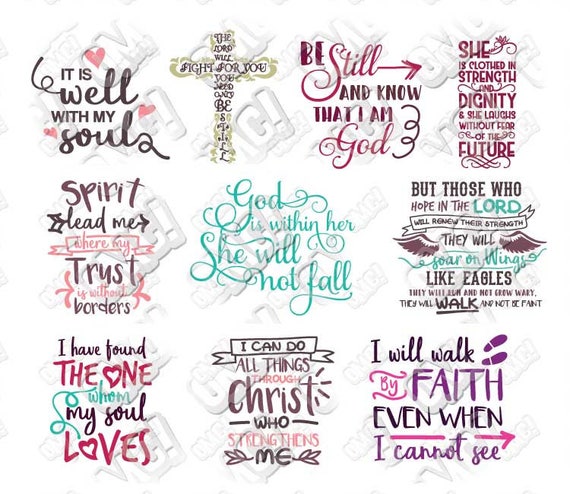 IT IS
well
WITH MY
soul
THE
LORD
WILL
FIGHT FOR YOU
YOU
NEED
ONLY
BE
STILL
BE
Still
AND KNOW
THAT I AM
God
SHE
IS CLOTHED IN
STRENGTH
AND
DIGNITY
& SHE LAUGHS
WITHOUT FEAR
OF THE
FUTURE
Spirit
lead me
where my
Trust
is without
borders
God
is within her
She will
not fall
BUT THOSE WHO
HOPE IN THE LORD
WILL RENEW THEIR STRENGTH
THEY WILL
soar on Wings
LIKE EAGLES
THEY WILL RUN AND NOT GROW WARY,
THEY WILL WALK AND NOT BE FAINT
I have found
THE ONE
whom
my soul
LOVES
I CAN DO
ALL THINGS
THROUGH
Christ
WHO
STRENGTHENS
ME
I will walk
BY FAITH
EVEN WHEN
I cannot see